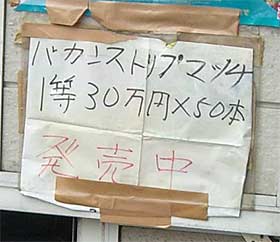 バカンストリプマッチ
1等30万円×50本
発売中